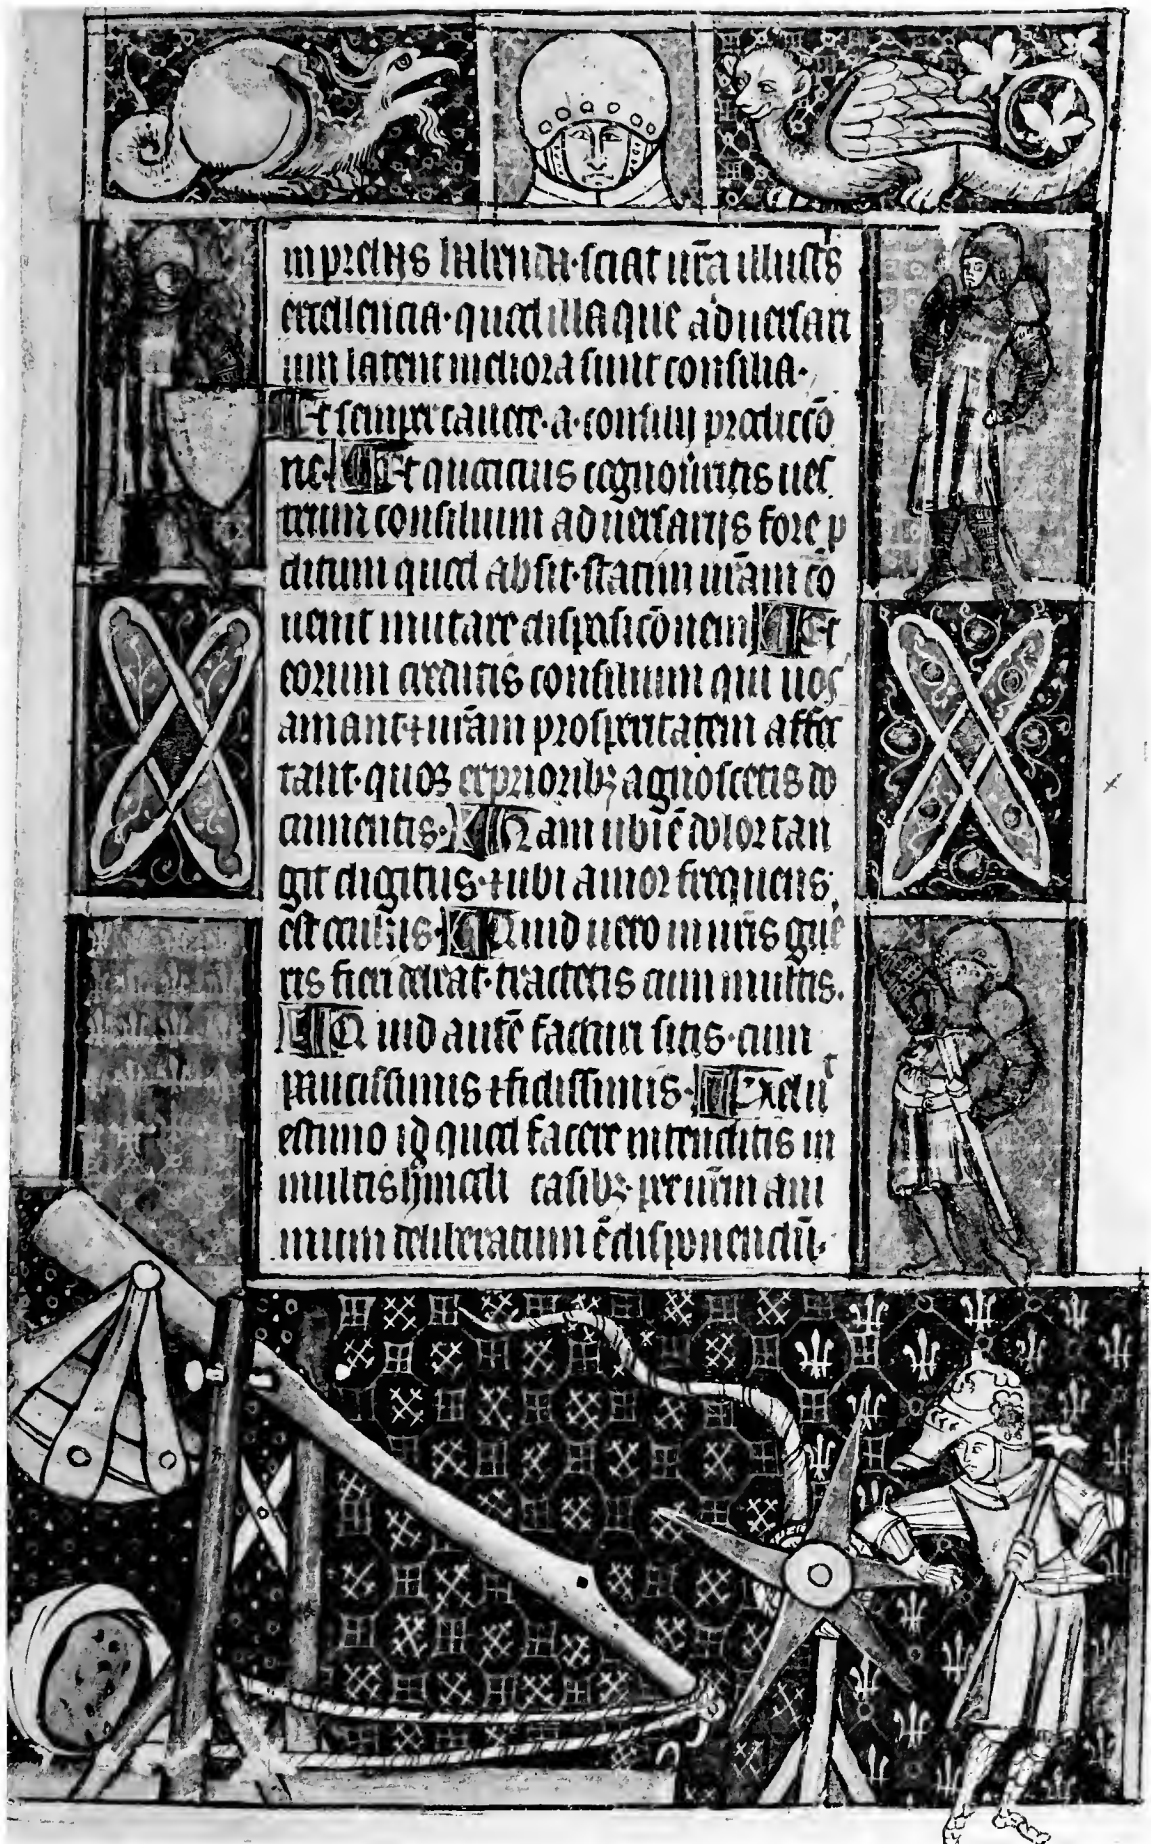 in prelijs habenda · sciat ur̄a illustr̄s
excellencia · quod illa que aduersari
um latent meliora sunt consilia ·
Et semper cauete · a · consilij prodiccō
ne · Et quociens cognoūitis ues
trum consilium aduersarijs fore p
ditum quod absit · statim ur̄am cō
uenit mutare disposicōnem Et
eorum creditis consilium qui uos
amant ⁊ ur̄am prosperitatem affec
tant · quos ex priorib; agnoscetis do
cumentis · Nam ubi ē dolor tan
git digitus · ⁊ ubi amor frequens
est oculus · Quid uero in ur̄is gue
ris fieri debeat · tractetis cum multis ·
Quid autē facturi sitis · cum
paucissimis ⁊ fidissimis · Extu
estimo id quod facere intenditis in
multis casib; per ur̄m ani
mum deliberatum ē disponendū ·